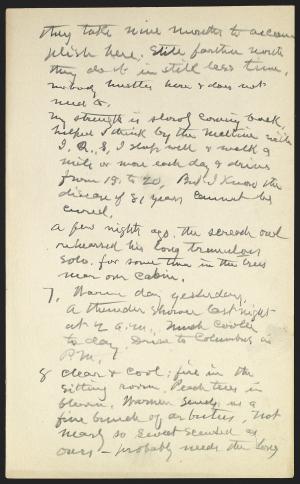 they take nine months to accom
plish here. Still farther north
they do it in still less time,
nobody hustles here & does not
need to.
My strength is slowly coming back,
helped I think by the
I. Q. S. I sleep well & walk a
mile or more each day & drive
from 15 to 20. But I know the
disease of 81 years cannot be
cured.
A few nights ago, the screech owl
rehearsed his long tremulous
solo for some time in the trees
near our cabin.
7, Warm day yesterday,
a thunder shower last night
at 2 a.m. Much cooler
to day. Drive to Columbus in
P.M.
8 Clear & cool; fire in the
sitting room. Peach trees in
bloom. Warner sends us a
fine bunch of arbutus, not
nearly so sweet scented as
ours — probably needs the long